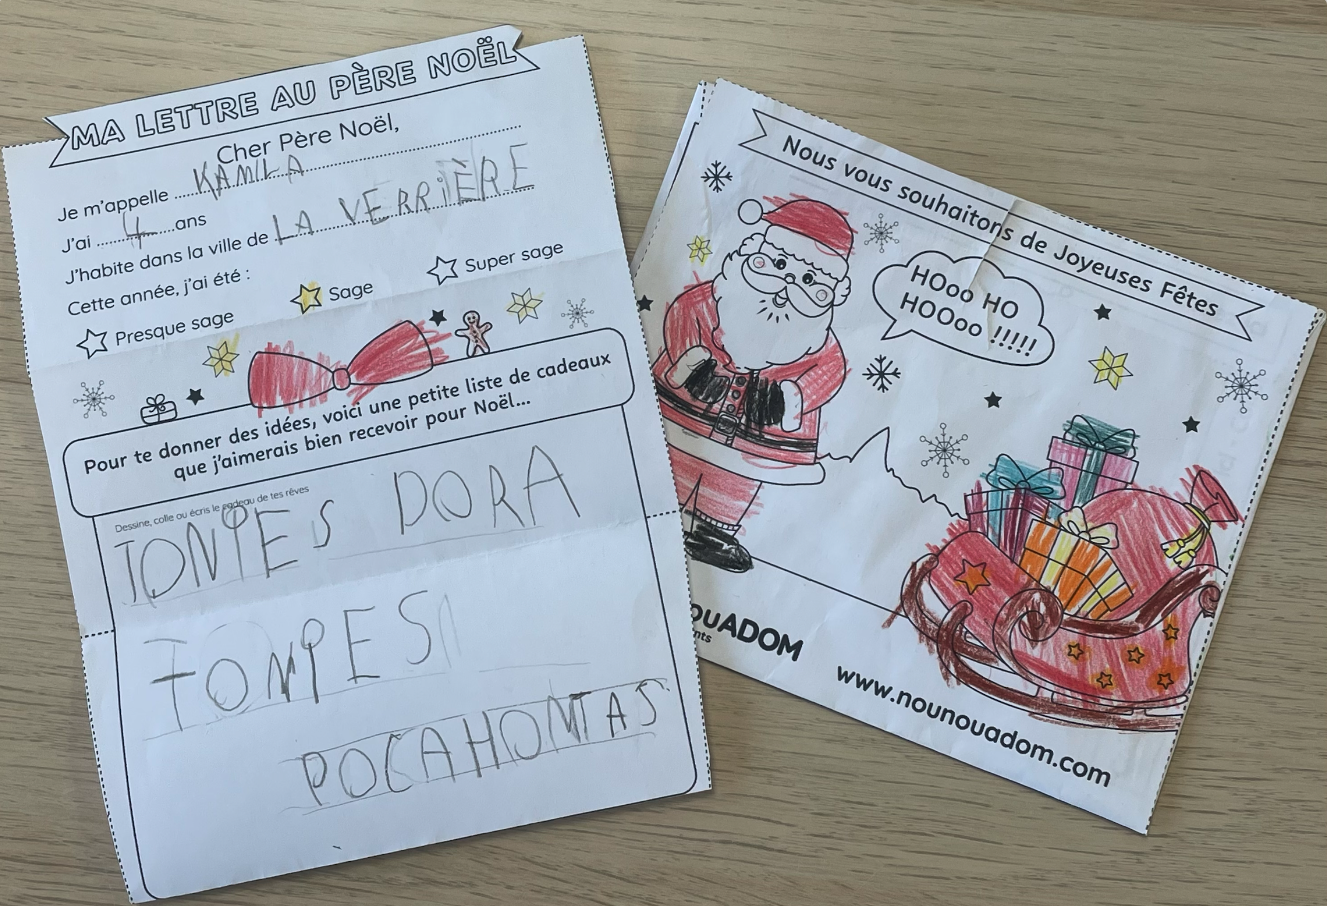 MA LETTRE AU PÈRE NOËL
Cher Père Noël,
Je m'appelle KAMILA
J'ai 4 ans
J'habite dans la ville de LA VERRIÈRE
Cette année, j'ai été :
Presque sage
Sage
Super sage
Pour te donner des idées, voici une petite liste de cadeaux
que j'aimerais bien recevoir pour Noël...
Dessine, colle ou écris le cadeau de tes rêves
TONIES DORA
TONIES
POCAHONTAS
Nous vous souhaitons de Joyeuses Fêtes
HOoo HO
HOOoo !!!!!
ouADOM
nts
www.nounouadom.com